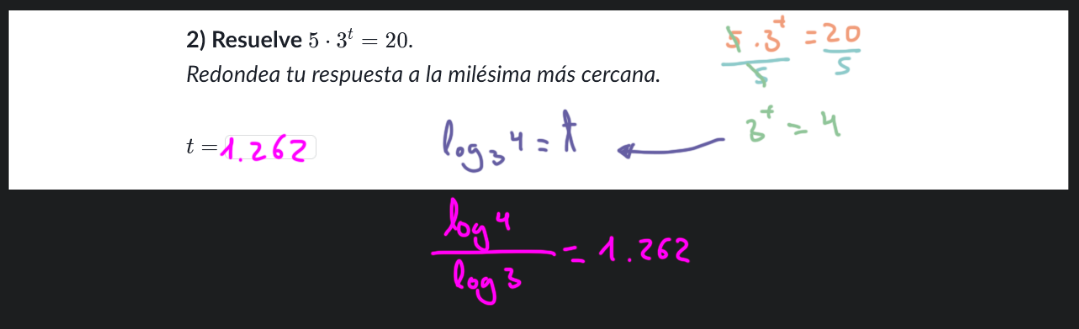 2) Resuelve 5 · 3^t = 20.
Redondea tu respuesta a la milésima más cercana.
t = 1.262
5 · 3^t / 5 = 20 / 5
3^t = 4
log₃ 4 = t
log 4 / log 3 = 1.262